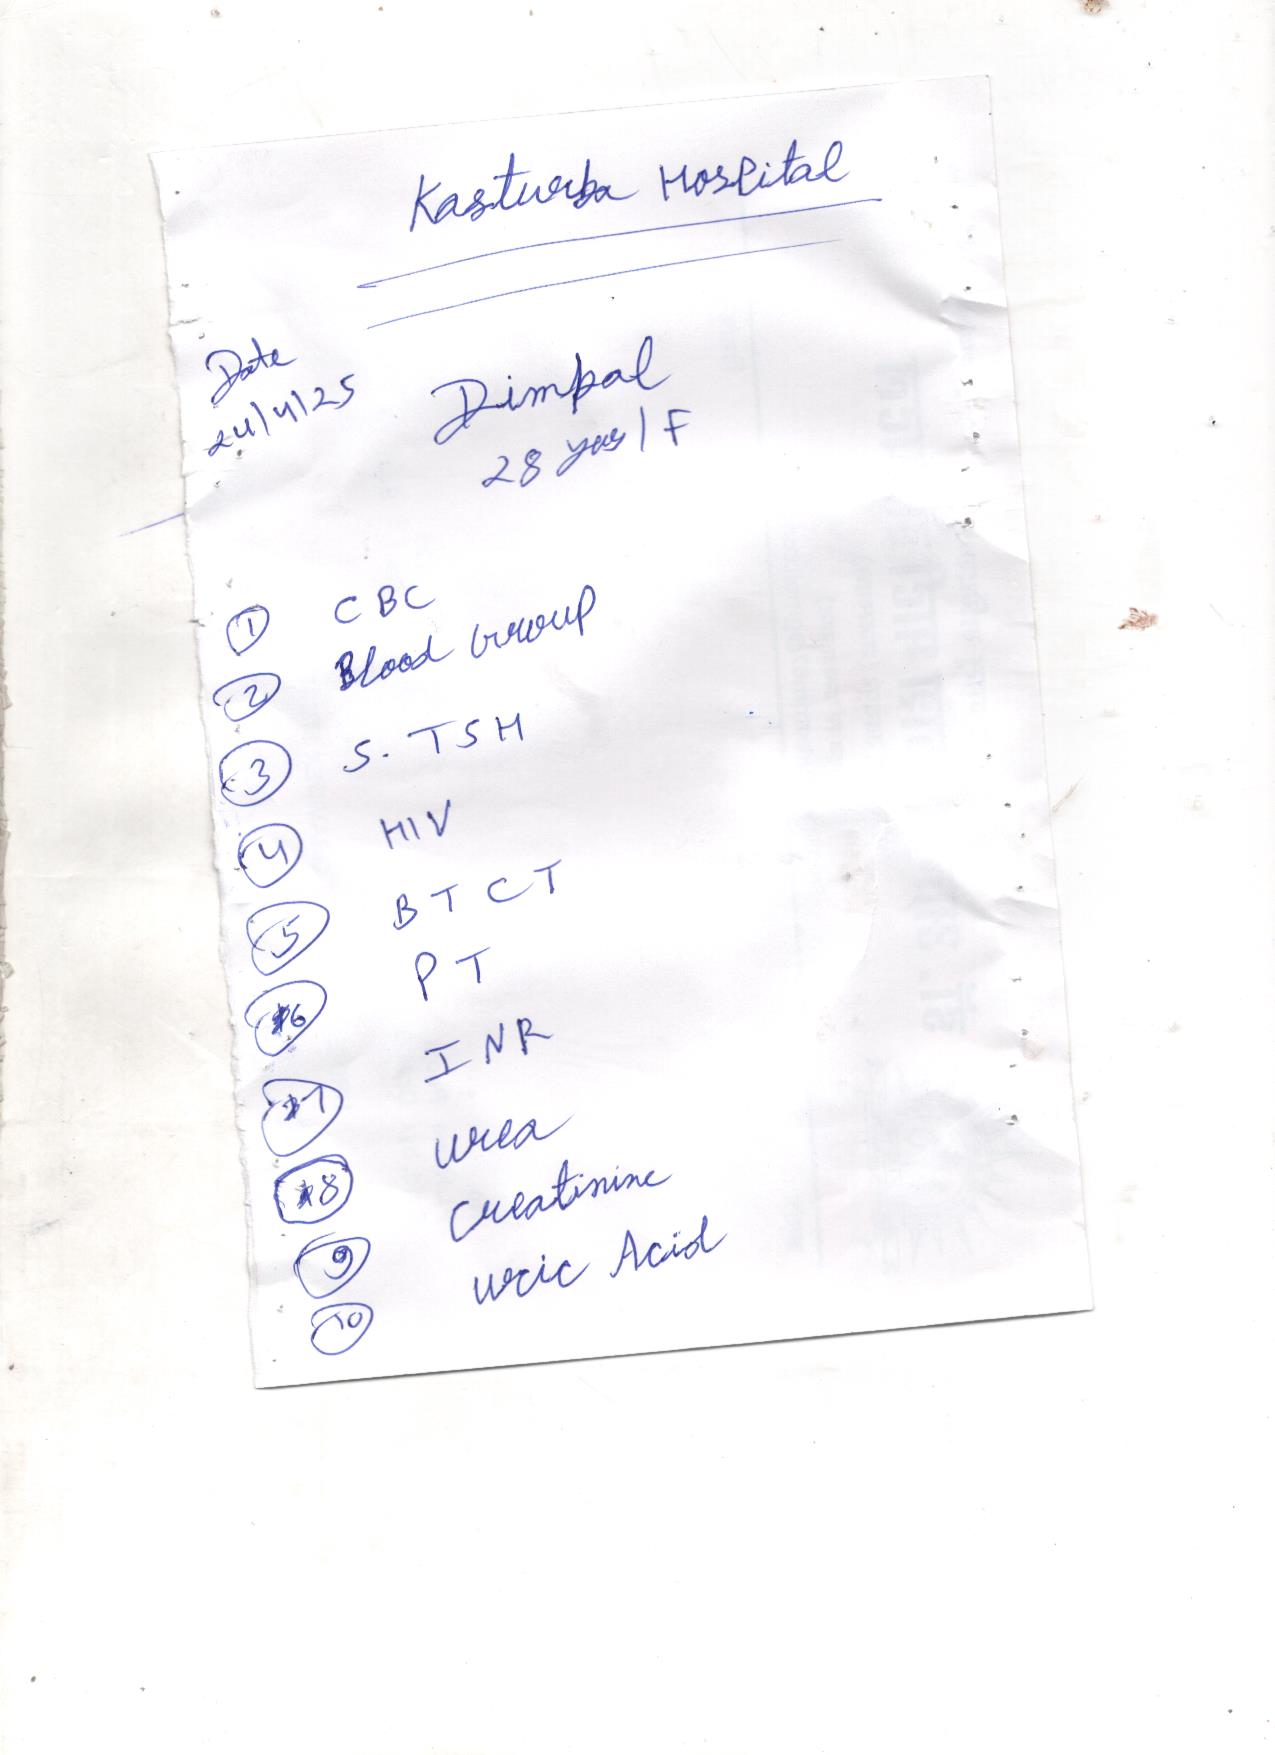 Kasturba Hospital
Date
24/4/25
Dimpal
28 yrs/F
1 CBC
2 Blood Group
3 S. TSH
4 HIV
5 BTCT
6 PT
7 INR
8 Urea
9 Creatinine
10 Uric Acid